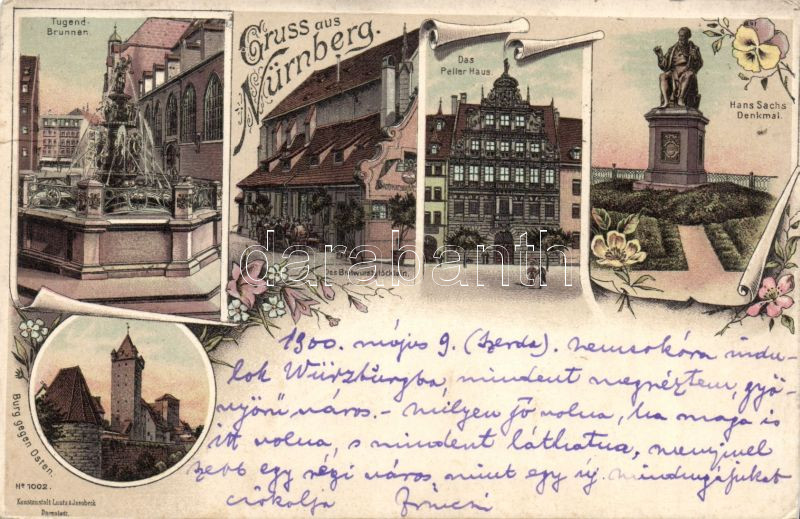 Tugend-
Brunnen.
Gruss aus
Nürnberg.
Das
Peller Haus.
Hans Sachs
Denkmal.
Das Bratwurstglöcklein.
darabanth
Burg gegen Osten.
1900. május 9. (Szerda). nemsokára indu-
lok Würzburgba, mindent megnéztem, gyö-
nyörű város. - milyen jó volna, ha maga is
itt volna, s mindent láthatna, mennyivel
szebb egy régi város, mint egy új. mindnyájukat
csókolja
No 1002.
Kunstanstalt Lautz & Isenbeck
Darmstadt.